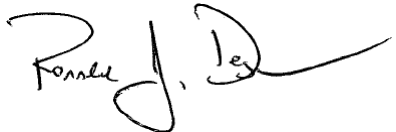 Ronald J. De